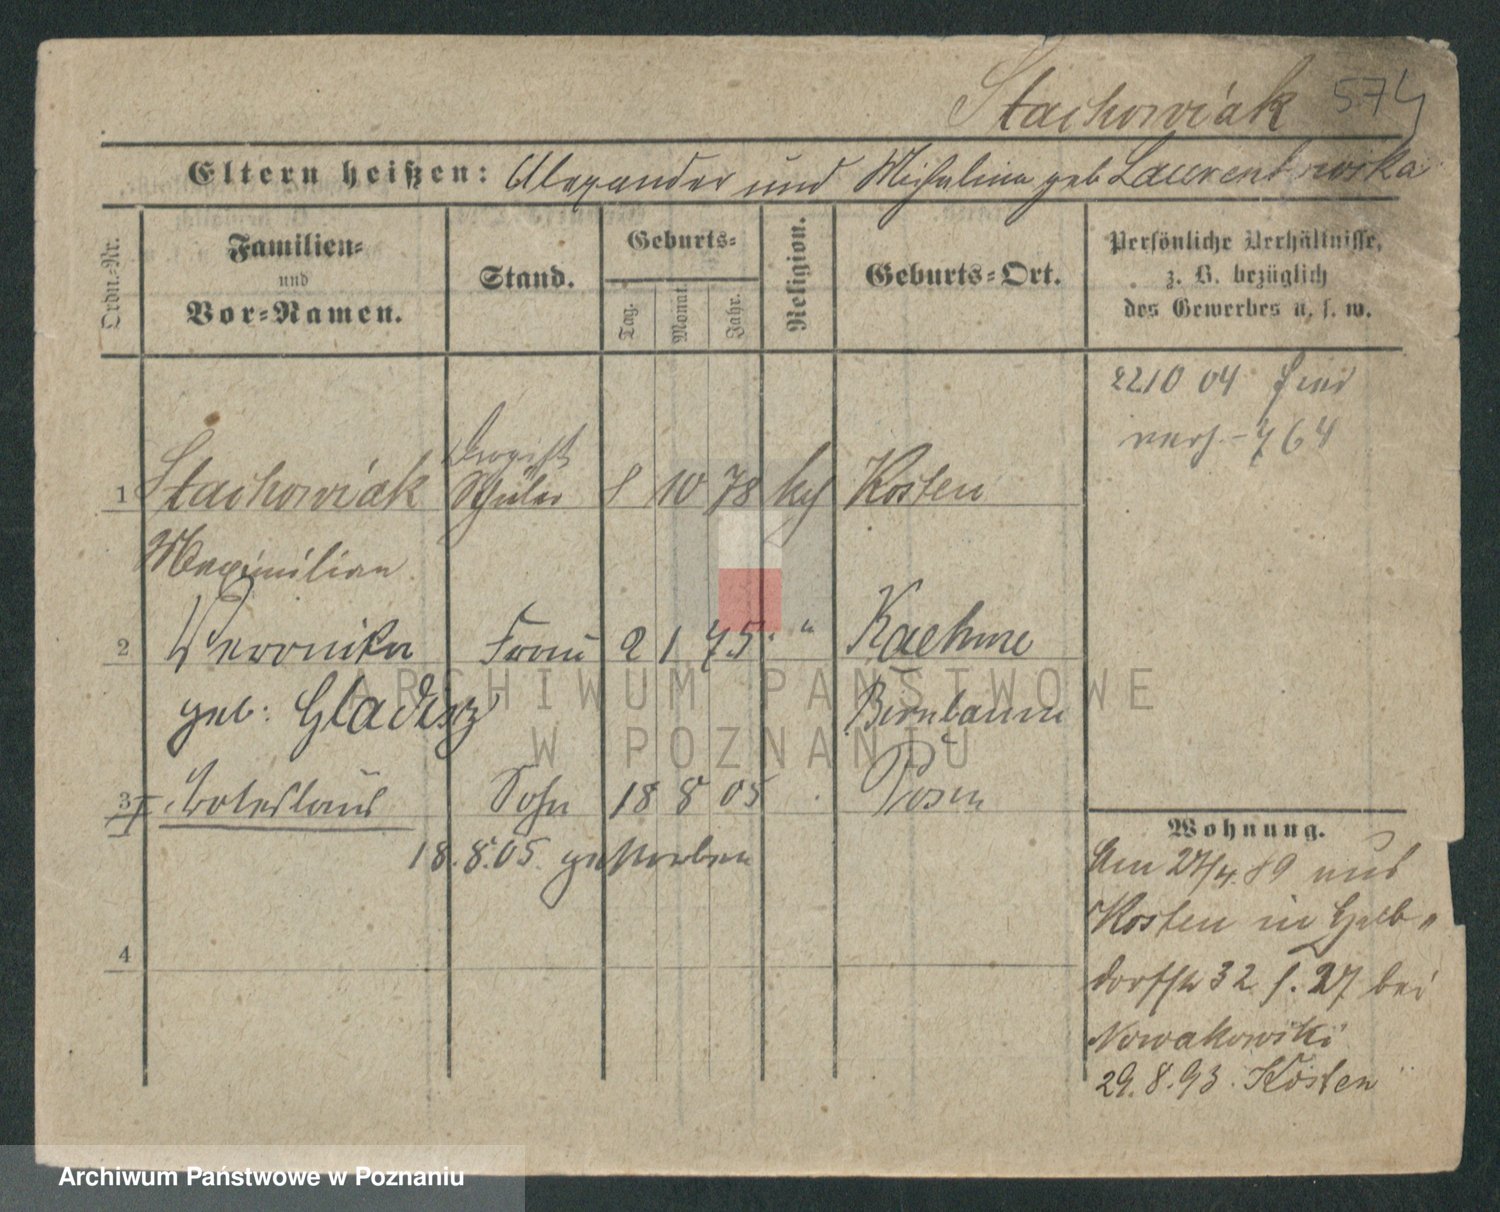 Stachowiak 574
Eltern heißen: Alexander und Michalina geb Laurentowska
Ordn.-Nr.
Familien-
und
Vor-Namen.
Stand.
Geburts-
Tag.
Monat.
Jahr.
Religion.
Geburts-Ort.
Persönliche Verhältnisse,
z. B. bezüglich
des Gewerbes u. s. w.
2210 04
764
Drogist
1 Stachowiak Schüler 8 10 78 kth Kosten
Maximilian
2 Veronika Frau 2 1 75 " Kaehme
geb: Gladisz Birnbaum
3 I Boleslaus Sohn 18 8 05 Posen
18.8.05 gestorben
4
Wohnung.
Am 27/4.89 aus
Kosten in Halb-
dorfstr 32 I. 27 bei
Nowakowski
29.8.93. Kosten
ARCHIWUM PAŃSTWOWE
W POZNANIU
Archiwum Państwowe w Poznaniu